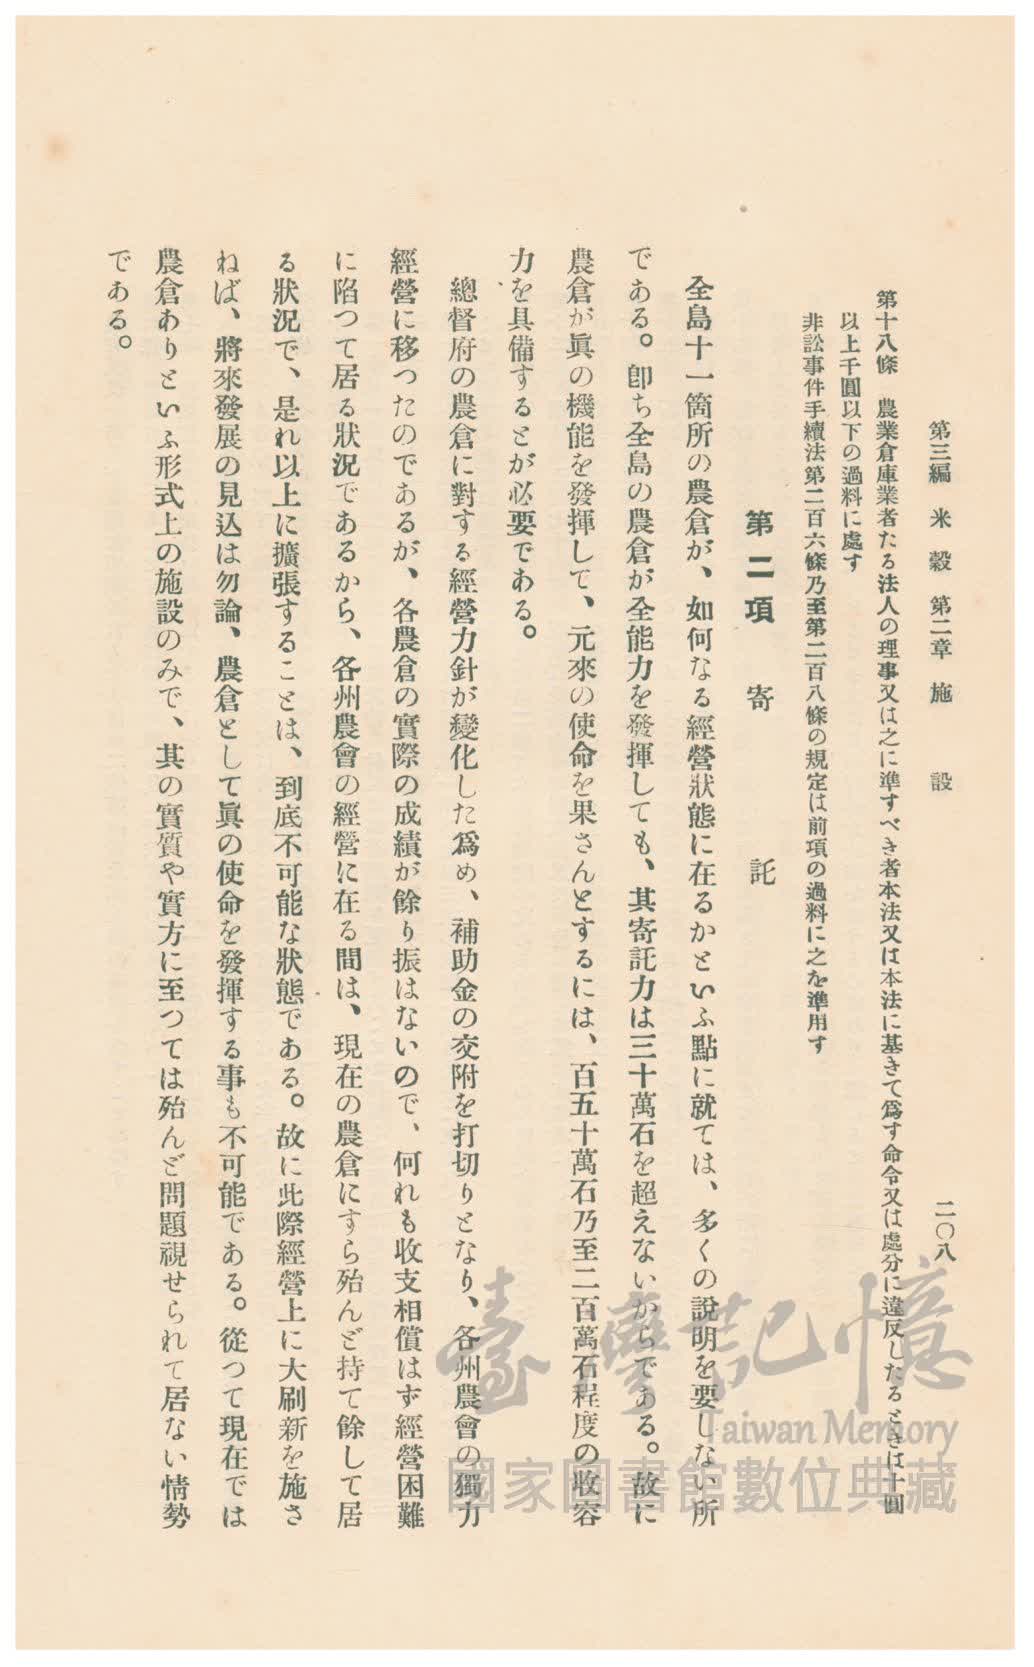 第三編　米穀　第二章　施設
二〇八
第十八條　農業倉庫業者たる法人の理事又は之に準すべき者本法又は本法に基きて爲す命令又は處分に違反したるときは十圓
以上千圓以下の過料に處す
非訟事件手續法第二百六條乃至第二百八條の規定は前項の過料に之を準用す
第二項　寄託
全島十一箇所の農倉が、如何なる經營狀態に在るかといふ點に就ては、多くの說明を要しない所
である。卽ち全島の農倉が全能力を發揮しても、其寄託力は三十萬石を超えないからである。故に
農倉が眞の機能を發揮して、元來の使命を果さんとするには、百五十萬石乃至二百萬石程度の收容
力を具備するとが必要である。
總督府の農倉に對する經營力針が變化した爲め、補助金の交附を打切りとなり、各州農會の獨力
經營に移つたのであるが、各農倉の實際の成績が餘り振はないので、何れも收支相償はず經營困難
に陷つて居る狀況であるから、各州農會の經營に在る間は、現在の農倉にすら殆んど持て餘して居
る狀況で、是れ以上に擴張することは、到底不可能な狀態である。故に此際經營上に大刷新を施さ
ねば、將來發展の見込は勿論、農倉として眞の使命を發揮する事も不可能である。從つて現在では
農倉ありといふ形式上の施設のみで、其の實質や實方に至つては殆んど問題視せられて居ない情勢
である。
臺灣記憶
Taiwan Memory
國家圖書館數位典藏